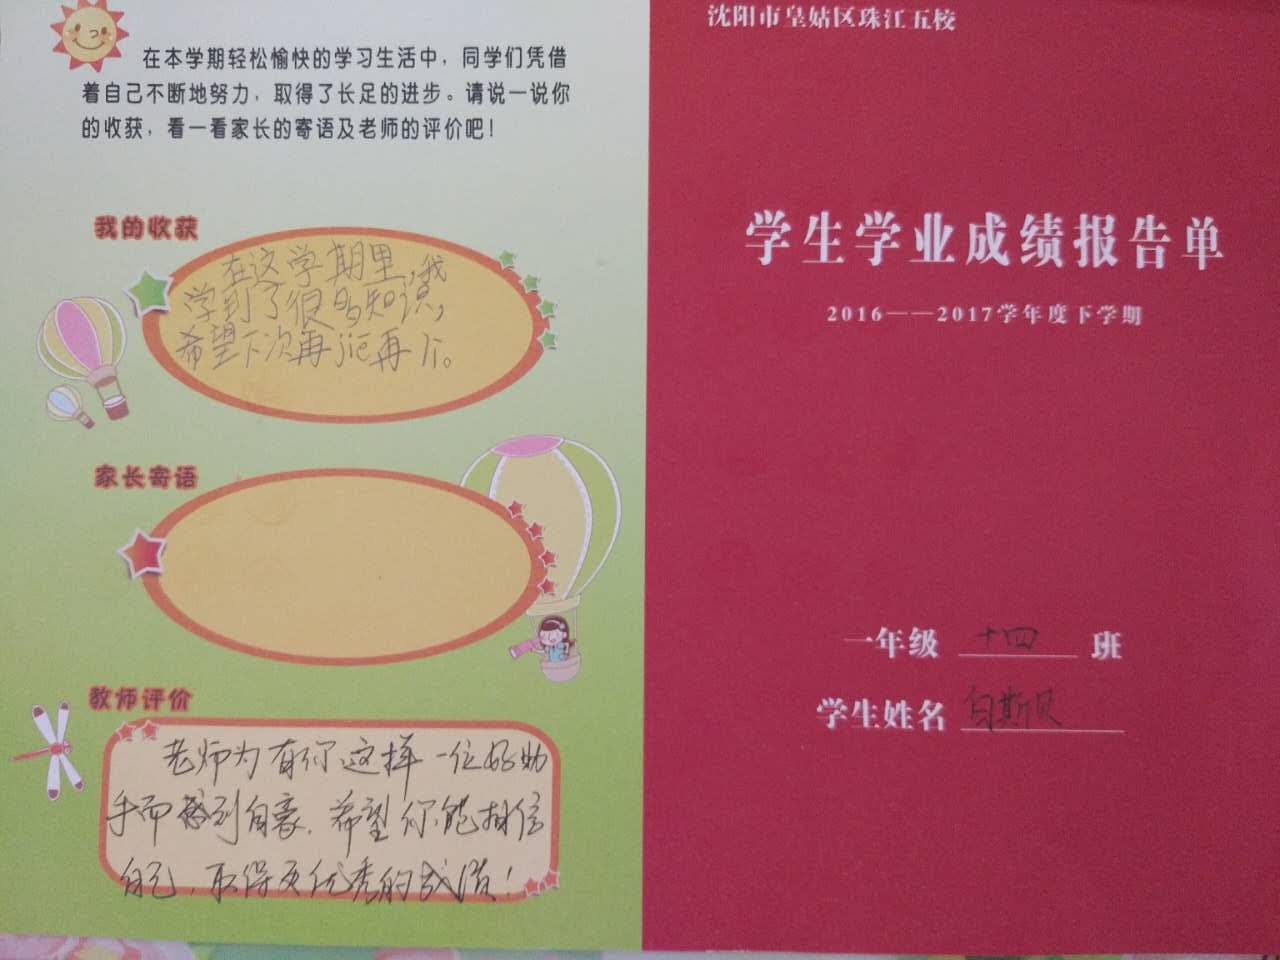 在本学期轻松愉快的学习生活中，同学们凭借
着自己不断地努力，取得了长足的进步。请说一说你
的收获，看一看家长的寄语及老师的评价吧！
我的收获
在这学期里，我
学到了很多知识，
希望下次再jie再li。
家长寄语
教师评价
老师为有你这样一位好助
手而感到自豪．希望你能相信
自己，取得更优秀的成绩！
沈阳市皇姑区珠江五校
学生学业成绩报告单
2016——2017学年度下学期
一年级 十四 班
学生姓名 白斯贝